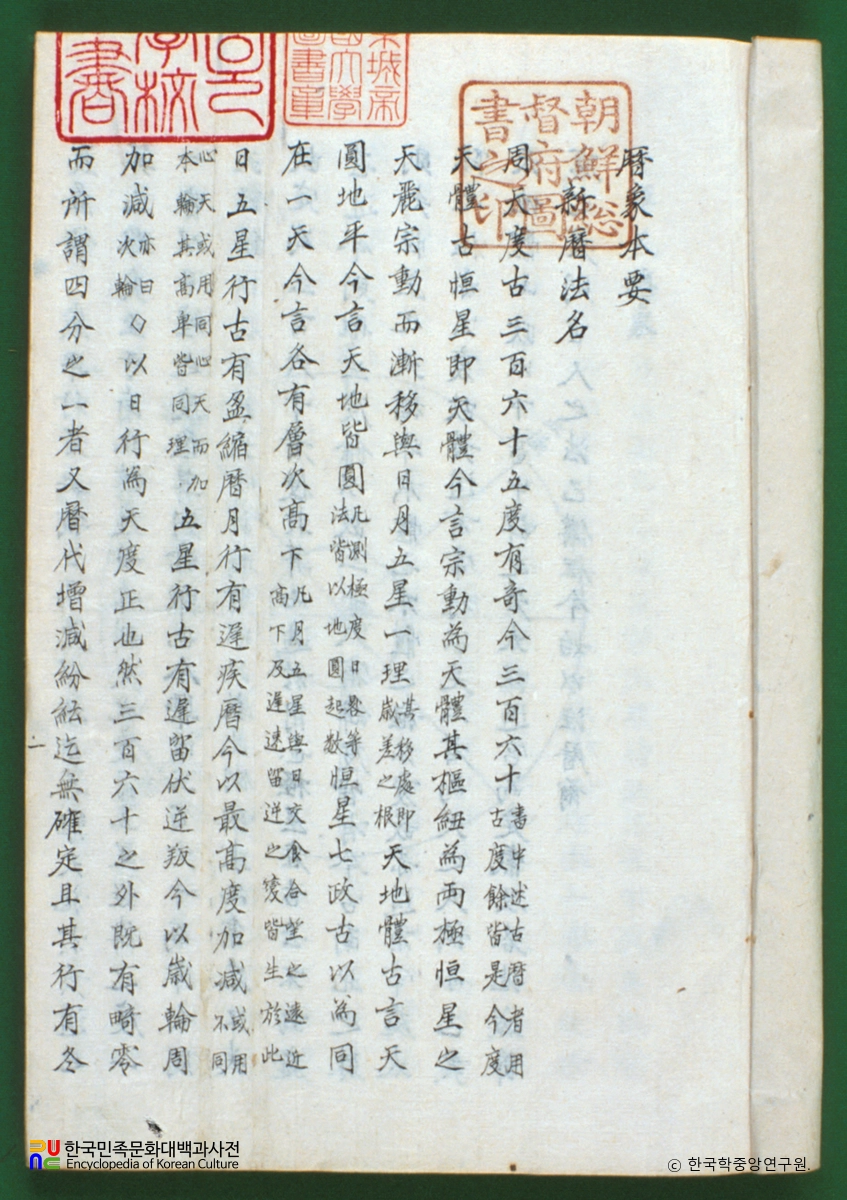 曆象本要
新曆法名
周天度古三百六十五度有奇今三百六十書中述古曆者用古度餘皆是今度
天體古恒星即天體今言宗動為天體其樞紐為兩極恒星之
天麗宗動而漸移與日月五星一理其移處即歲差之根天地體古言天
圓地平今言天地皆圓凡測極度日晷等法皆以地圓起数恒星七政古以為同
在一天今言各有層次高下凡月五星與日交食合望之遠近高下及遲速留逆之變皆生於此
日五星行古有盈縮曆月行有遲疾曆今以最高度加减或用不同
心天或用同心天而加本輪其高卑皆同理五星行古有遲留伏逆叚今以嵗輪周
加减亦曰次輪◇以日行為天度正也然三百六十之外既有畸零
而所謂四分之一者又曆代增减紛紜迄無確定且其行有冬
一
朝鮮総督府圖書之印
京城帝國大學圖書章
학교
한국민족문화대백과사전
Encyclopedia of Korean Culture
© 한국학중앙연구원.